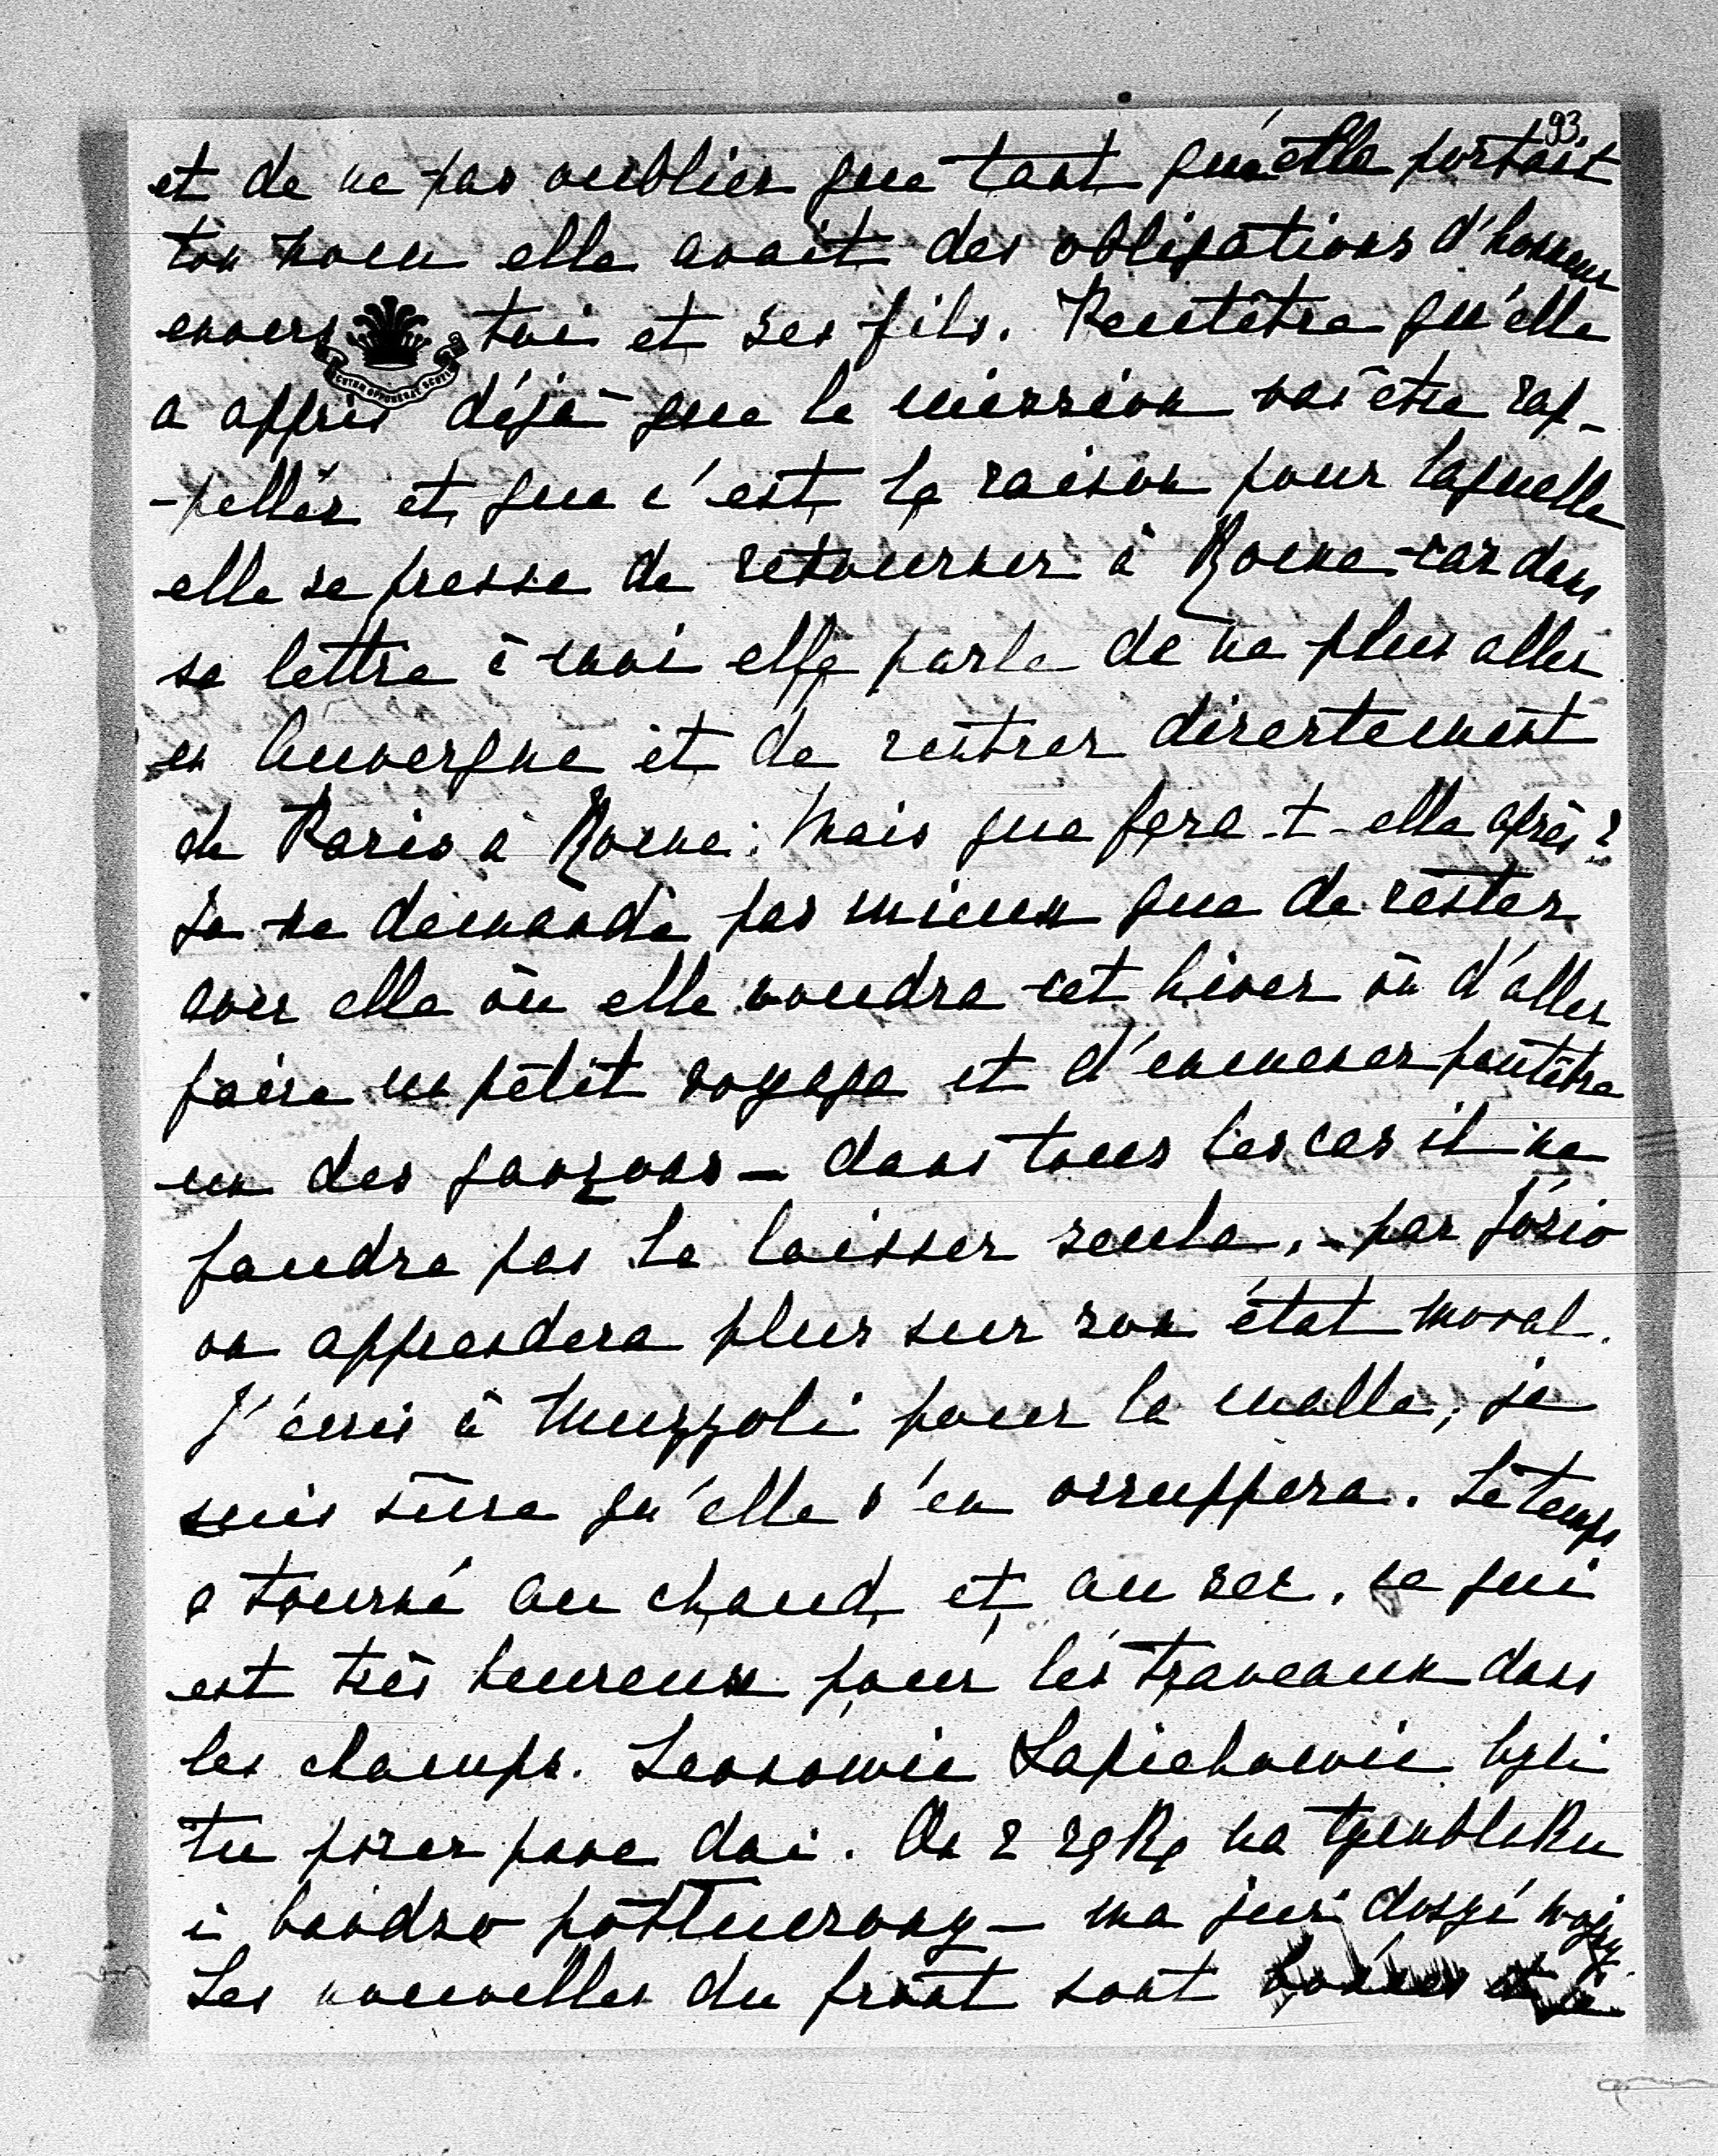 93.
et de ne pas oublier que tant qu'elle portait
ton nom elle avait des obligations d'honneur
envers toi et ses fils. Peutêtre qu'elle
a appris déjà que la mission vas être rap-
-pellér et que c'est la raison pour laquelle
elle se presse de retourner à Rome car dans
sa lettre à moi elle parle de ne plus aller
en Auvergne et de rentrer directement
de Paris à Rome. Mais que fera-t-elle après?
Je ne demande pas mieux que de rester
avec elle où elle voudra cet hiver où d'aller
faire un petit voyage et d'emmener peutêtre
un des garçons — dans tous les cas il ne
faudra pas la laisser seule, - par Józio
on apprendera plus sur son état moral.
J'écris à Muzzoli pour la malle; je
suis sûre qu'elle s'en occuppera. Le temps
a tourné au chaud et au sec, ce qui
est très heureux pour les travaux dans
les champs. Leonowie Sapiehowie byli
tu przez parę dni. On z ręką na temblaku
i bardzo potłuczony — ma już dosyć wojny.
Les nouvelles du front sont